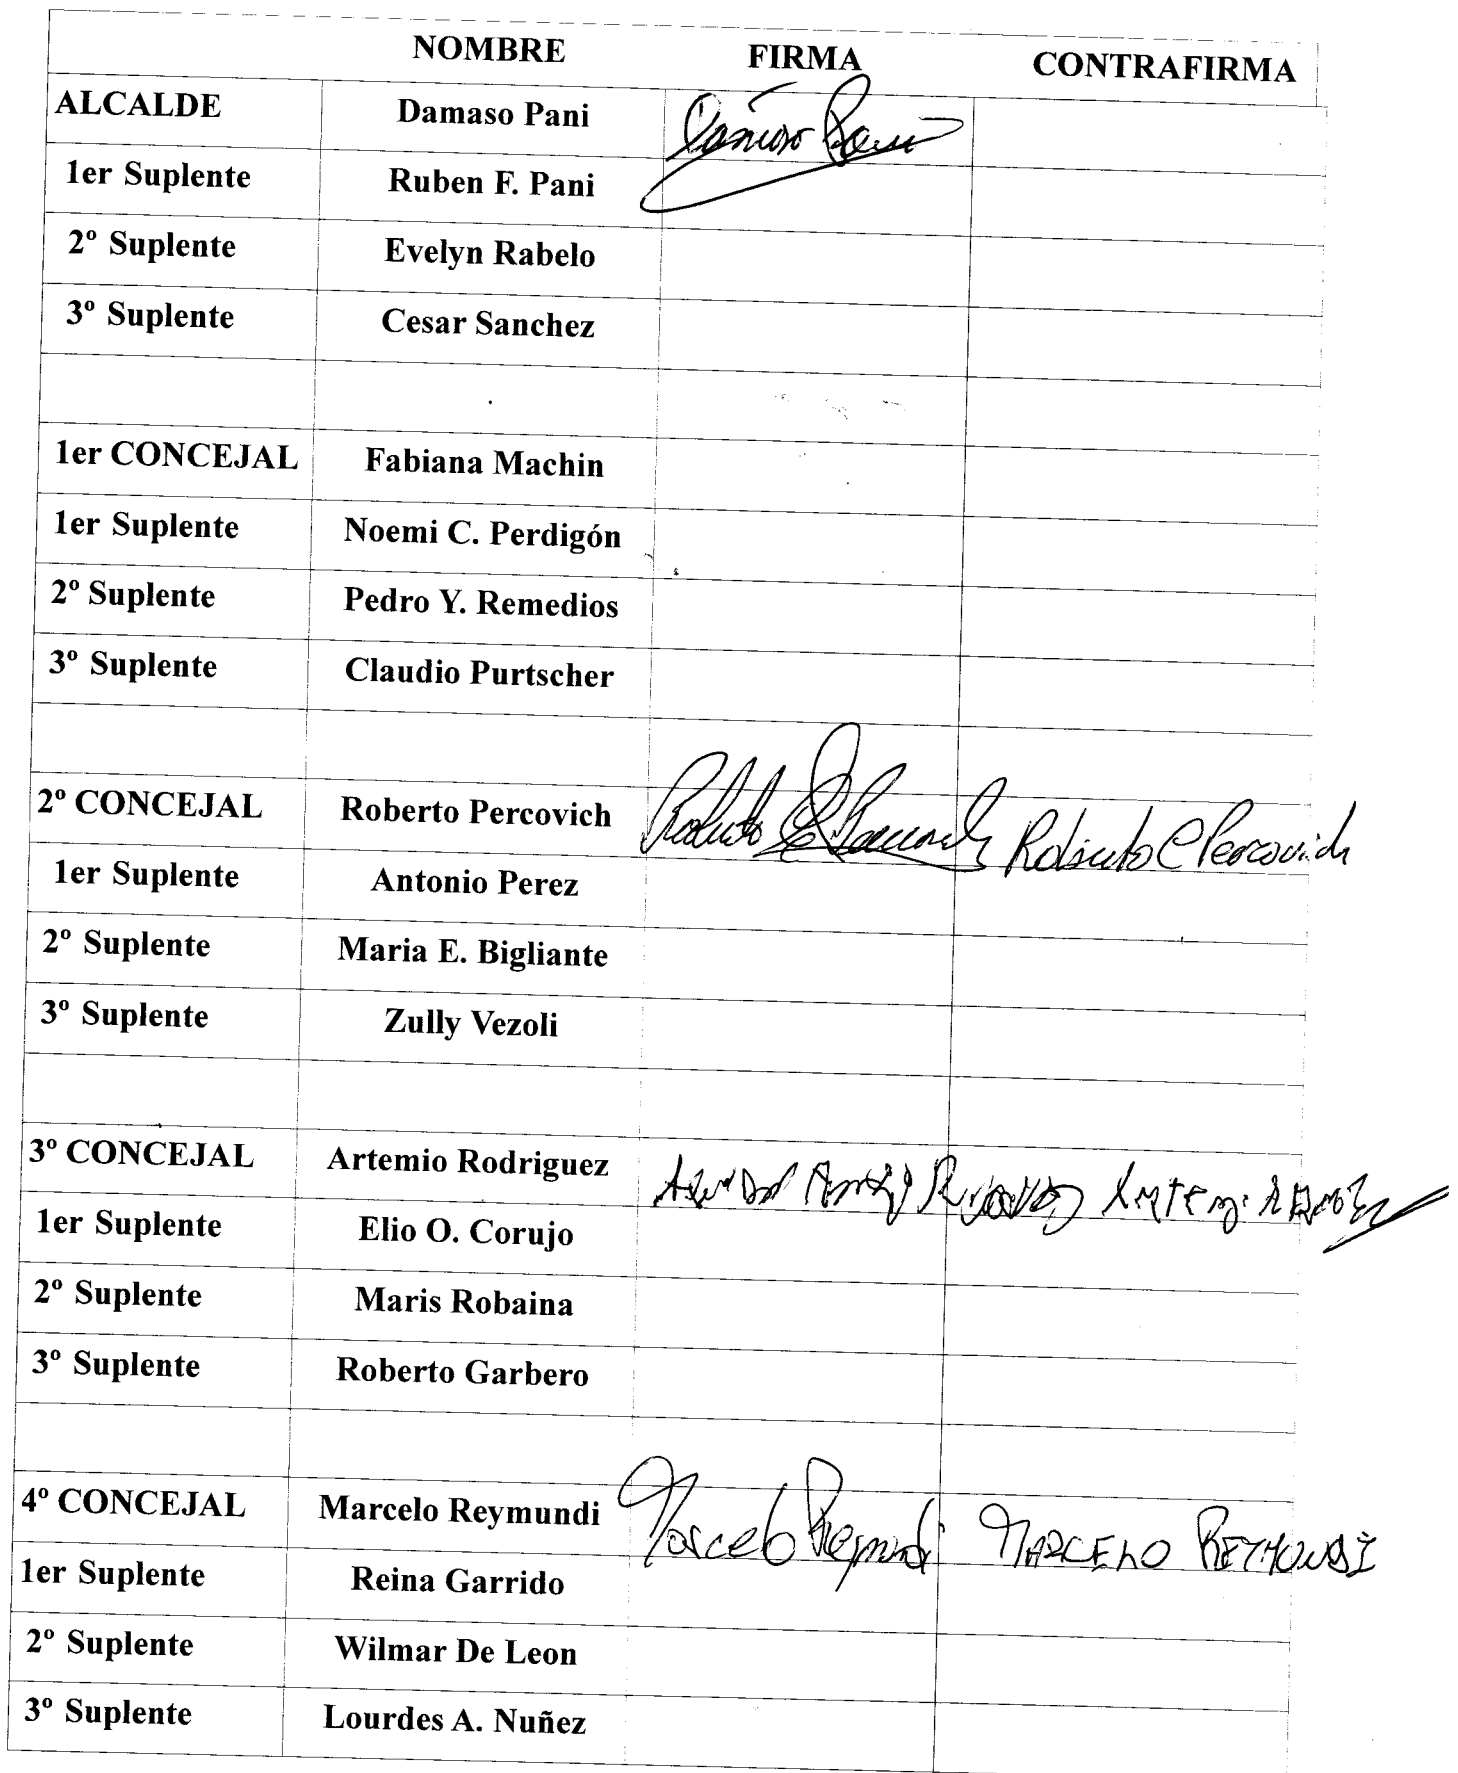 NOMBRE FIRMA CONTRAFIRMA
ALCALDE Damaso Pani
1er Suplente Ruben F. Pani
2º Suplente Evelyn Rabelo
3º Suplente Cesar Sanchez
1er CONCEJAL Fabiana Machin
1er Suplente Noemi C. Perdigón
2º Suplente Pedro Y. Remedios
3º Suplente Claudio Purtscher
2º CONCEJAL Roberto Percovich Roberto Roberto C Percovich
1er Suplente Antonio Perez
2º Suplente Maria E. Bigliante
3º Suplente Zully Vezoli
3º CONCEJAL Artemio Rodriguez
1er Suplente Elio O. Corujo
2º Suplente Maris Robaina
3º Suplente Roberto Garbero
4º CONCEJAL Marcelo Reymundi Marcelo Reymundi MARCELO REYMUNDI
1er Suplente Reina Garrido
2º Suplente Wilmar De Leon
3º Suplente Lourdes A. Nuñez